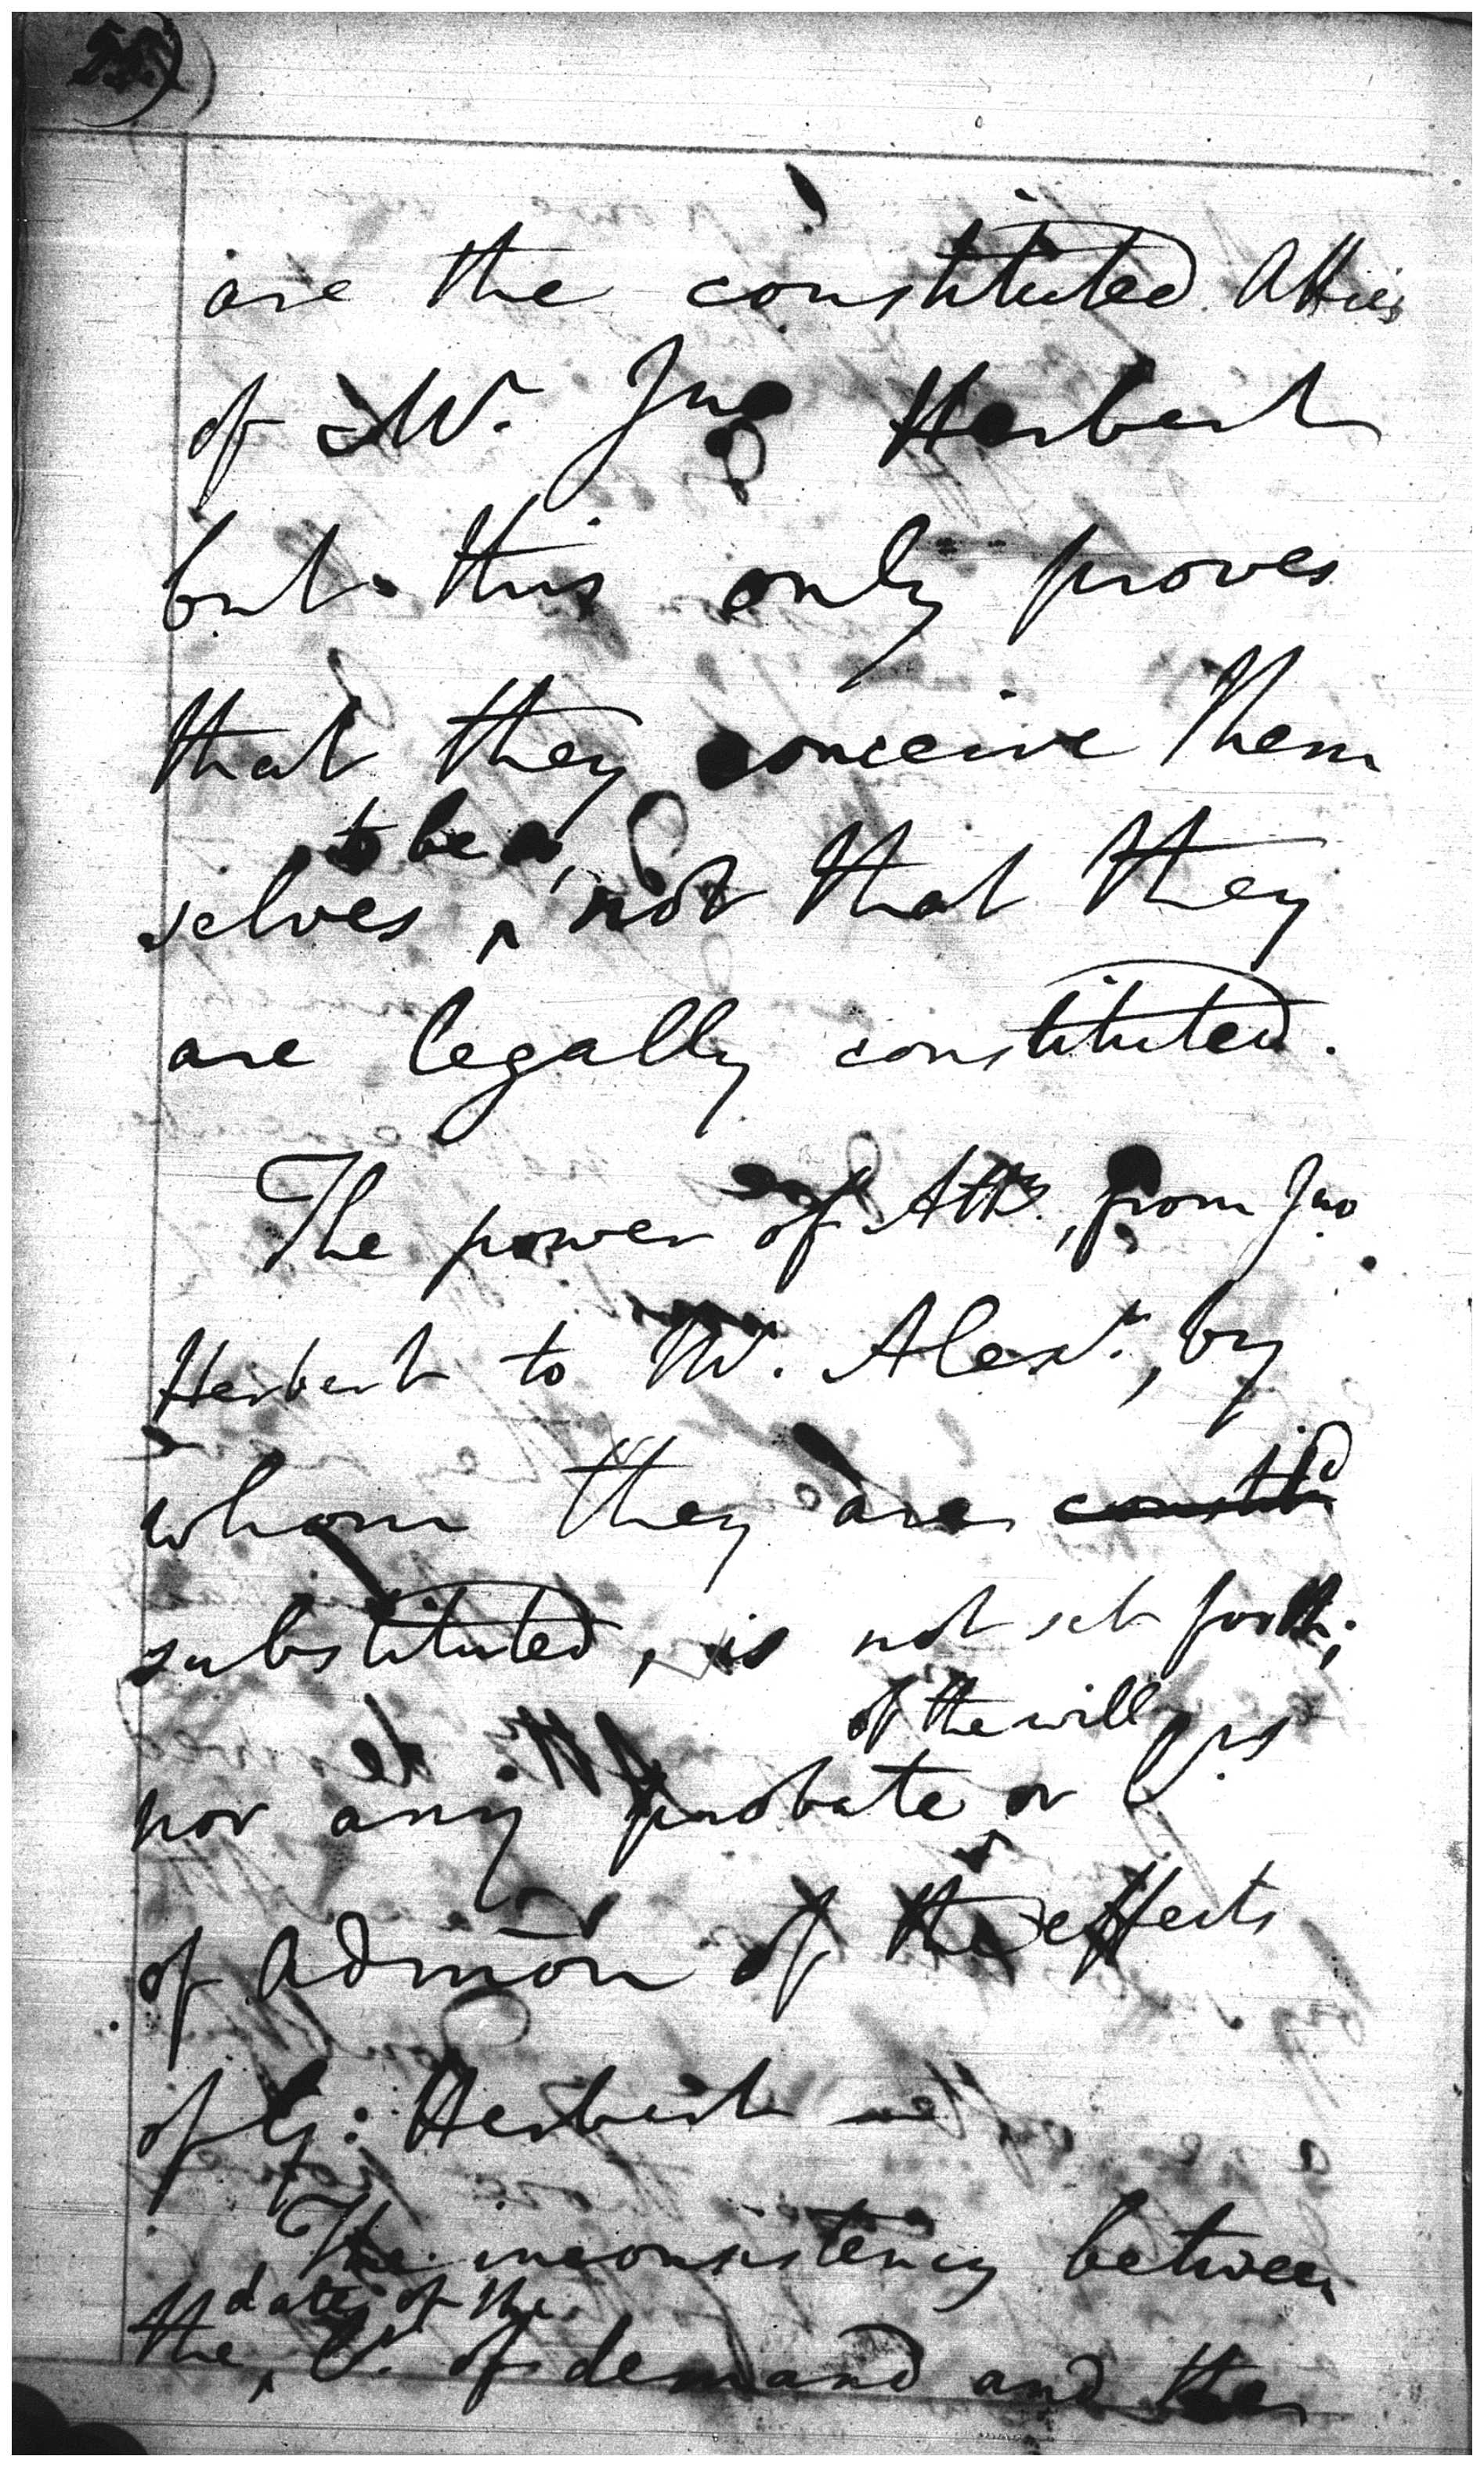 are the constituted Atties
of Mr. Jno Herbert
but this only proves
that they conceive them
to be
selves , not that they
are legally constituted.
The power of Atty. , from Jno
Herbert to Mr. Alexr., by
whom they are
substituted, is not set forth;
of the will
nor any probate or
of Admōn of the effects
of G: Herbert
The inconsistency between
date of the
the of demand and the